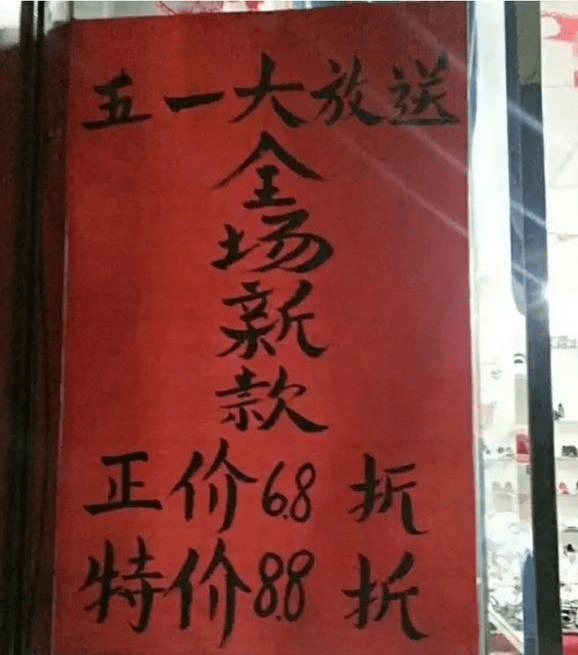 五一大放送
全场新款
正价6.8折
特价8.8折